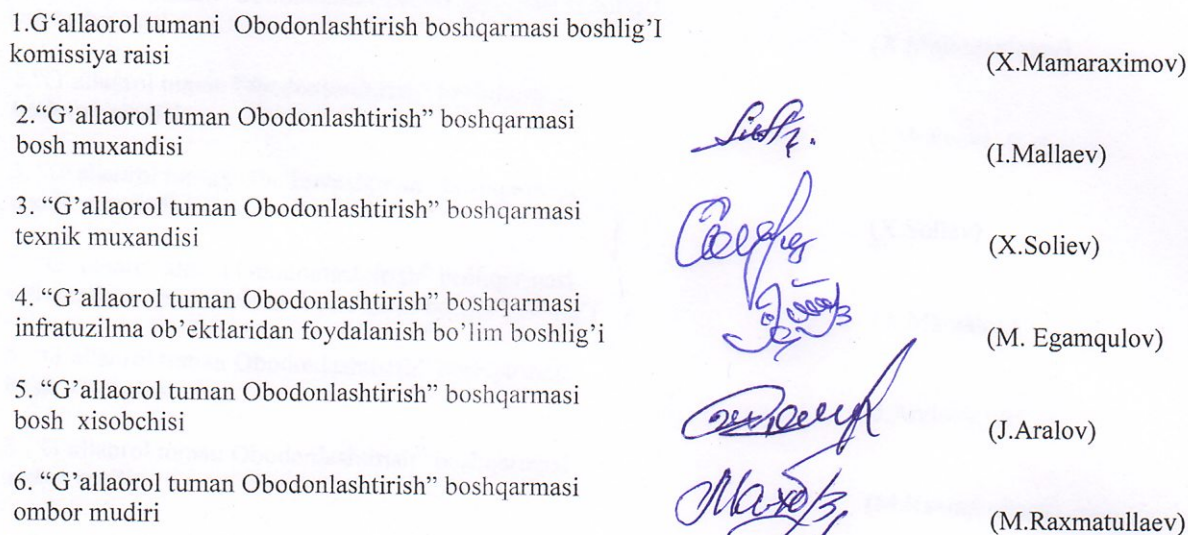 1.G‘allaorol tumani Obodonlashtirish boshqarmasi boshlig’I
komissiya raisi
(X.Mamaraximov)
2.“G’allaorol tuman Obodonlashtirish” boshqarmasi
bosh muxandisi
(I.Mallaev)
3. “G’allaorol tuman Obodonlashtirish” boshqarmasi
texnik muxandisi
(X.Soliev)
4. “G’allaorol tuman Obodonlashtirish” boshqarmasi
infratuzilma ob’ektlaridan foydalanish bo’lim boshlig’i
(M. Egamqulov)
5. “G’allaorol tuman Obodonlashtirish” boshqarmasi
bosh xisobchisi
(J.Aralov)
6. “G’allaorol tuman Obodonlashtirish” boshqarmasi
ombor mudiri
(M.Raxmatullaev)